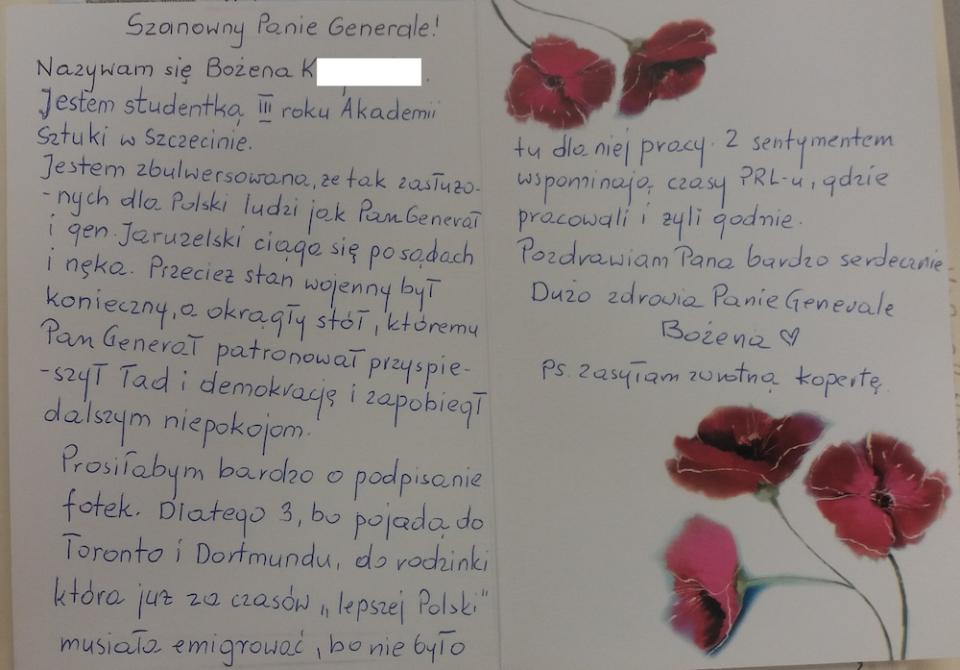 Szanowny Panie Generale!
Nazywam się Bożena K
Jestem studentką III roku Akademii
Sztuki w Szczecinie.
Jestem zbulwersowana, że tak zasłużo-
-nych dla Polski ludzi jak Pan Generał
i gen. Jaruzelski ciąga się po sądach
i nęka. Przecież stan wojenny był
konieczny, a okrągły stół, któremu
Pan Generał patronował przyspie-
-szył ład i demokrację i zapobiegł
dalszym niepokojom.
Prosiłabym bardzo o podpisanie
fotek. Dlatego 3, bo pojadą do
Toronto i Dortmundu, do rodzinki
która już za czasów „lepszej Polski"
musiała emigrować, bo nie było
tu dla niej pracy. Z sentymentem
wspominają czasy PRL-u, gdzie
pracowali i żyli godnie.
Pozdrawiam Pana bardzo serdecznie.
Dużo zdrowia Panie Generale
Bożena ♡
Ps. zasyłam zwrotną kopertę.